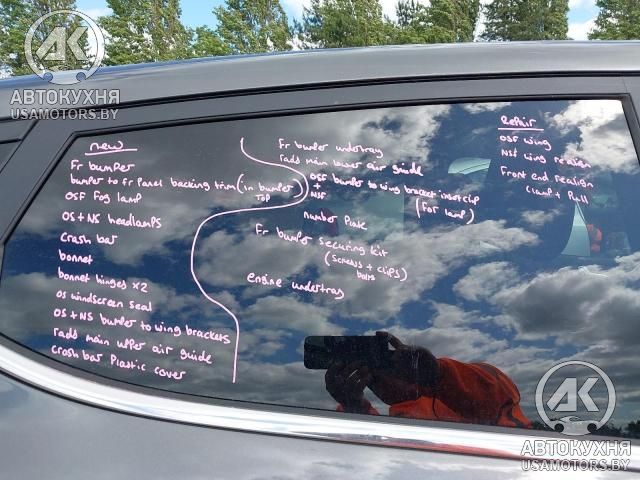 AK
АВТОКУХНЯ
USAMOTORS.BY
new
Fr bumper
bumper to fr Panel backing trim (in bumper
TOP
OSF Fog lamp
OS + NS headlamps
Crash bar
bonnet
bonnet hinges x2
os windscreen seal
OS + NS bumper to wing brackets
radd main upper air guide
Crash bar Plastic cover
Fr bumper undertray
radd main lower air guide
OSF bumper to wing bracket insert clip
+
NSF
(For lamp)
number Plate
Fr bumper securing kit
(Screws + clips)
bolts
engine undertray
Repair
OSF wing
NSF wing realign
Front end realign
Clamp + Pull
AK
АВТОКУХНЯ
USAMOTORS.BY